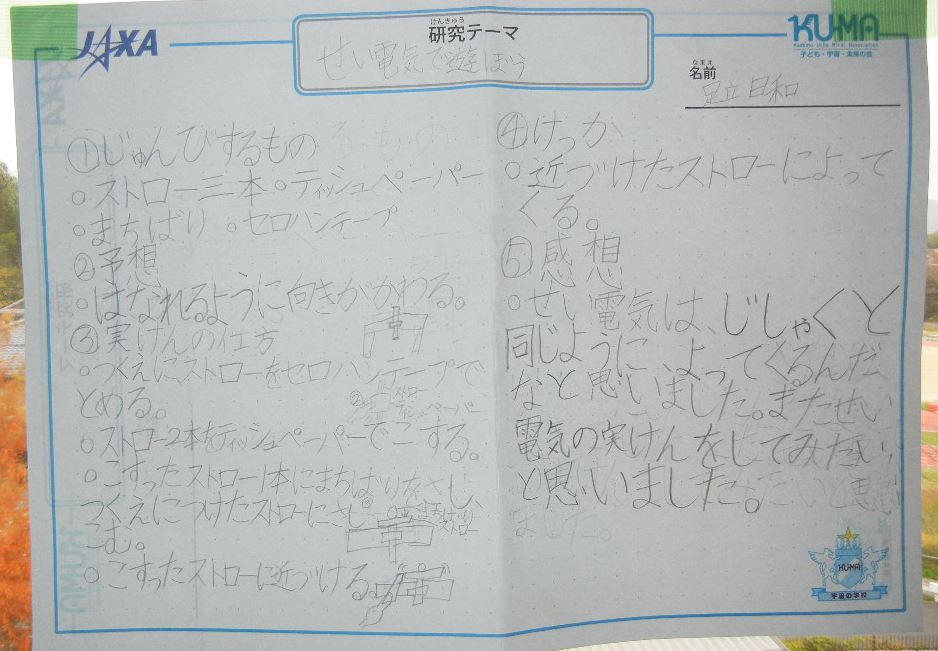 JAXA
けんきゅう
研究テーマ
せい電気で遊ぼう
KUMA
子ども・宇宙・未来の会
なまえ
名前
足立 日和
①じゅんびするもの
○ストロー三本○ティッシュペーパー
○まちばり ○セロハンテープ
②予想
○はなれるように向きがかわる。
③実けんの仕方
○つくえにストローをセロハンテープで
とめる。
ストロー
ティッシュペーパー
○ストロー2本をティッシュペーパーでこする。
○こすったストロー1本にまちばりをさし、
つくえにつけたストローにさし
こむ。
まちばり
ストロー
○こすったストローに近づける。
④けっか
○近づけたストローによって
くる。
⑤感想
○せい電気は、じしゃくと
同じように、よってくるんだ
なと思いました。またせい
電気の実けんをしてみたい
と思いました。
KUMA
宇宙の学校